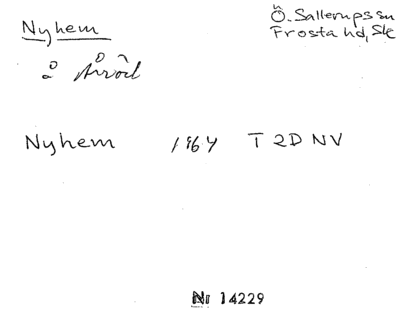 Nyhem
Ö. Sallerups sn
Frosta hd, Sk
Nyhem 1964 T 2D NV
Nr 14229